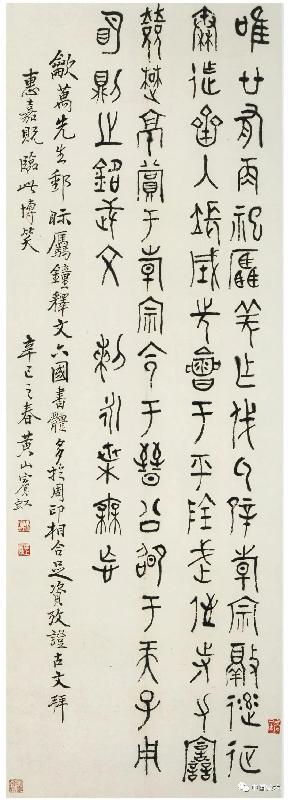 唯廿又再祀驫羌乍戎氒辟倝宗敲逨征
秦迮齊入長城先會于平陰武侄寺力
敓楚京賞于倝宗令于晉公卲于天子用
明則之銘武文 剌永枼毋忘
歗萬先生郵眎驫鐘釋文六國書體多於周印相合足資攷證古文拜
惠嘉貺臨此博笑
辛巳之春黃山賓虹